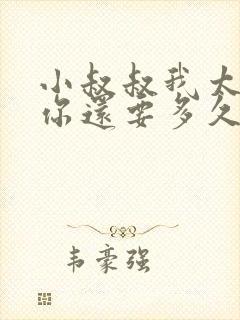 小叔叔我太
你還要多久
韦豪强